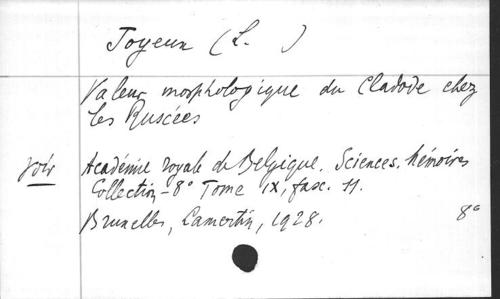 Joyeux (L. )
Valeur morphologique du Cladode chez
les Ruscées
voir Académie royale de Belgique. Sciences. Mémoires
Collection-8° Tome IX, fasc. 11.
Bruxelles, Lamertin, 1928. 8°